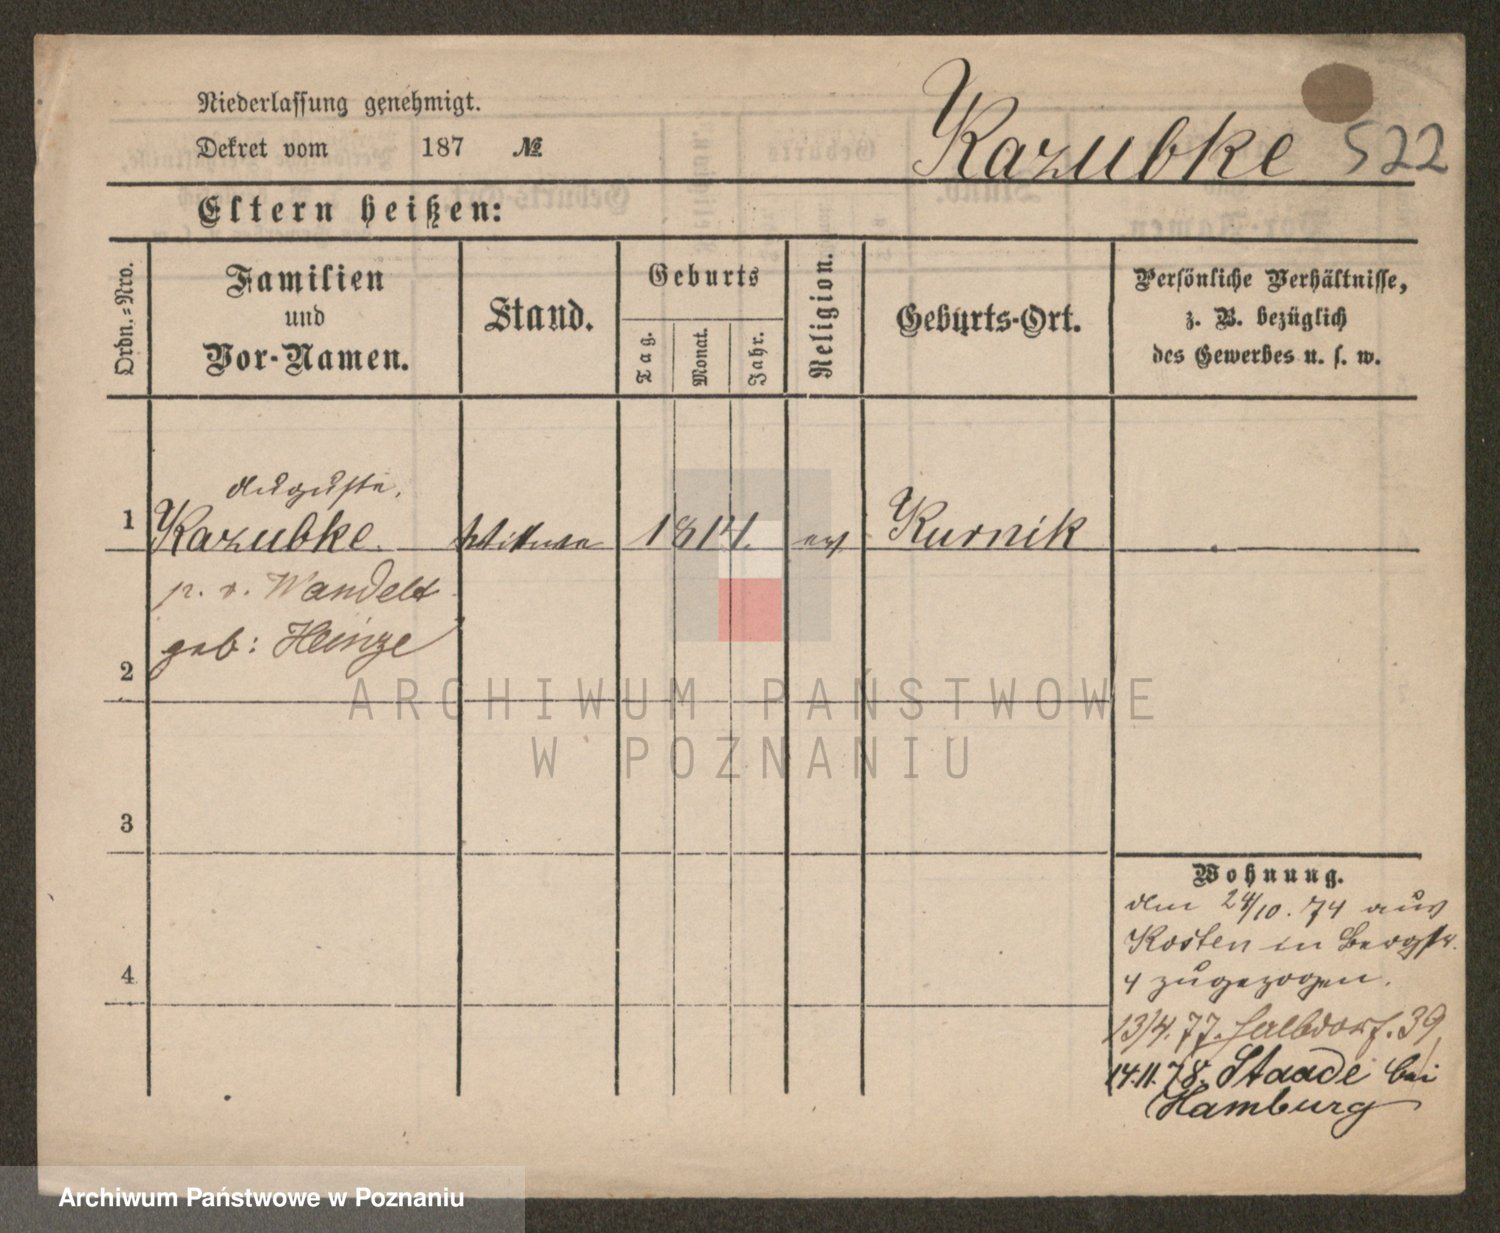 Niederlassung genehmigt.
Dekret vom 187 №
Kazubke 522
Eltern heißen:
Ordn.-Nro.
Familien
und
Vor-Namen.
Stand.
Geburts
Tag.
Monat.
Jahr.
Religion.
Geburts-Ort.
Persönliche Verhältnisse,
z. B. bezüglich
des Gewerbes u. s. w.
Auguste.
1 Kazubke Wittwe 1814. ev Kurnik
p. v. Wandelt
geb: Heinze
2
ARCHIWUM PAŃSTWOWE
W POZNANIU
3
Wohnung.
den 24/10. 74 aus
Kosten in Bergstr.
4 zugezogen.
4
13/4. 77. Halbdorf. 39
14.11.78. Staade bei
Hamburg
Archiwum Państwowe w Poznaniu